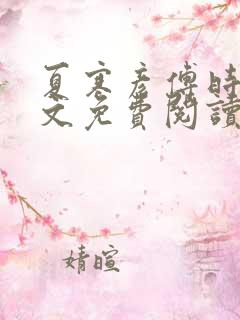 夏寒彦傅時
文免費閱讀
婧暄